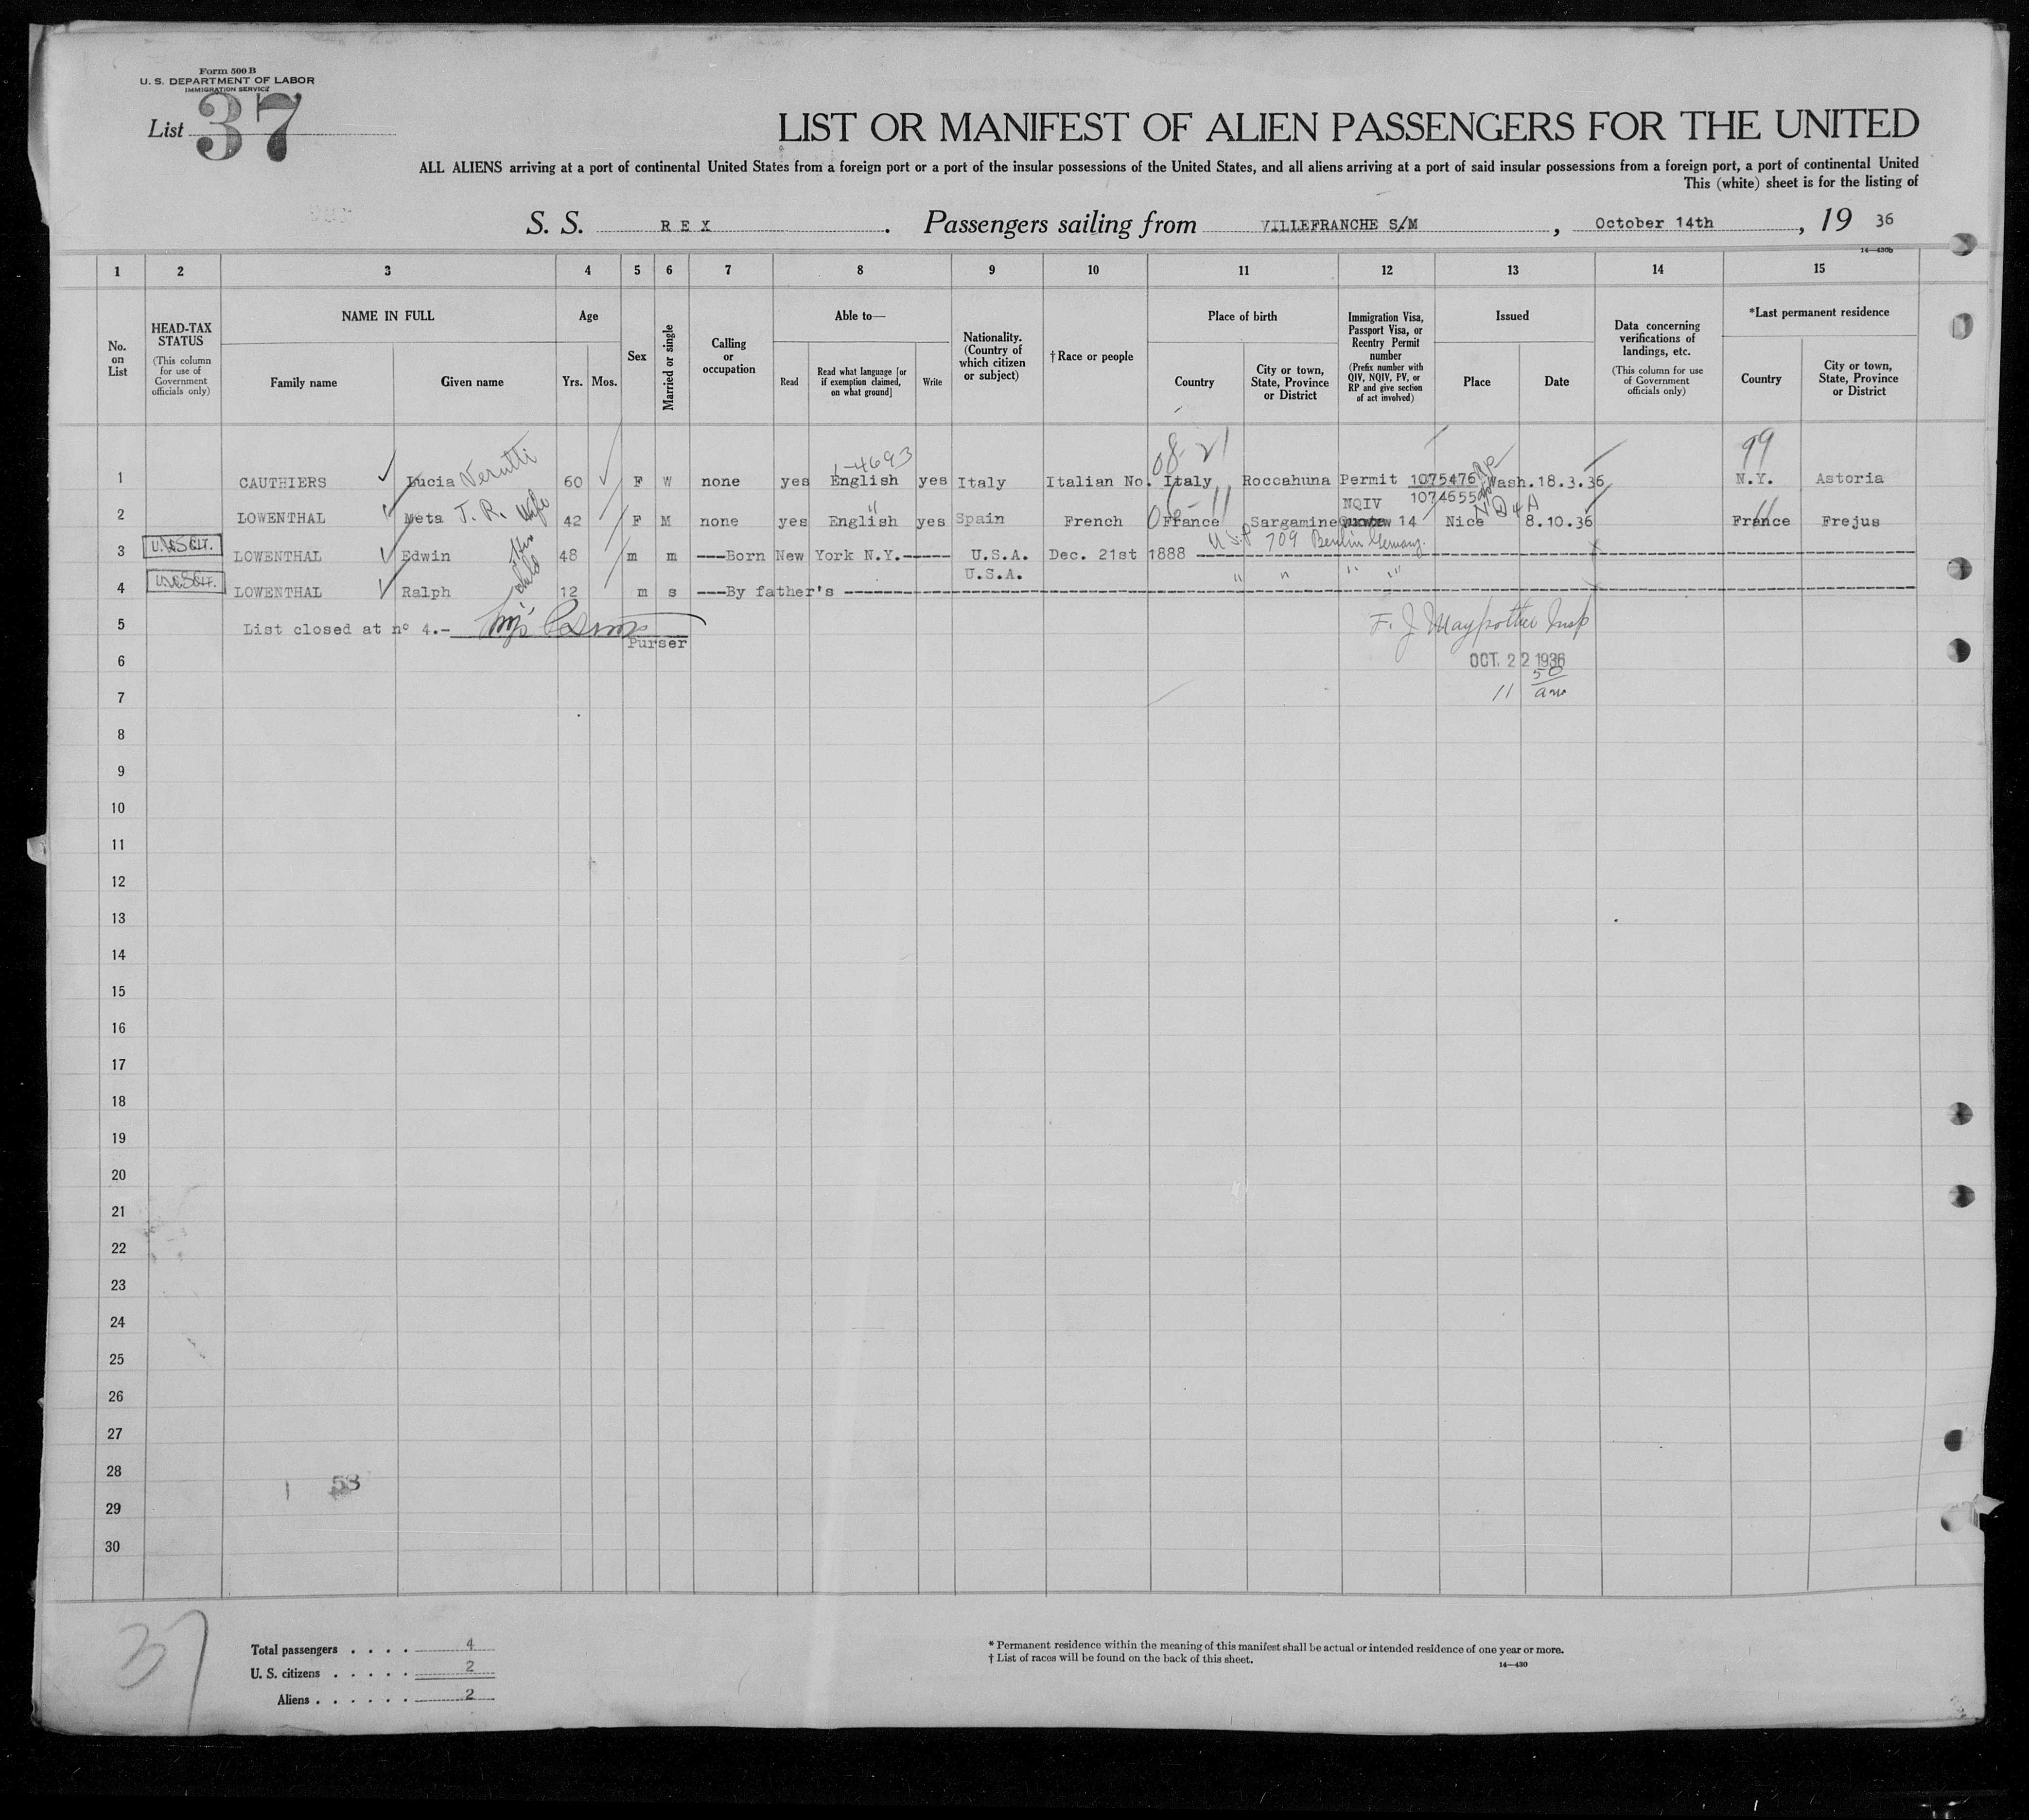 Form 500 B
U. S. DEPARTMENT OF LABOR
IMMIGRATION SERVICE
List 37
LIST OR MANIFEST OF ALIEN PASSENGERS FOR THE UNITED
ALL ALIENS arriving at a port of continental United States from a foreign port or a port of the insular possessions of the United States, and all aliens arriving at a port of said insular possessions from a foreign port, a port of continental United
This (white) sheet is for the listing of
S. S. REX. Passengers sailing from VILLEFRANCHE S/M, October 14th, 19 36
14—430b
1 2 3 4 5 6 7 8 9 10 11 12 13 14 15
No. on List
HEAD-TAX STATUS
(This column for use of Government officials only)
NAME IN FULL
Family name Given name
Age
Yrs. Mos.
Sex
Married or single
Calling or occupation
Able to—
Read Read what language [or if exemption claimed, on what ground] Write
Nationality. (Country of which citizen or subject)
†Race or people
Place of birth
Country City or town, State, Province or District
Immigration Visa, Passport Visa, or Reentry Permit number
(Prefix number with QIV, NQIV, PV, or RP and give section of act involved)
Issued
Place Date
Data concerning verifications of landings, etc.
(This column for use of Government officials only)
*Last permanent residence
Country City or town, State, Province or District
1-4693 99
1 CAUTHIERS Lucia Verutti 60 F W none yes English yes Italy Italian No. Italy Roccahuna Permit 1075476 Wash. 18.3.36 N.Y. Astoria
NQIV 1074655
2 LOWENTHAL Meta J. R. wife 42 F M none yes English yes Spain French France Sargamine 14 Nice 8.10.36 France Frejus
U.S.P 709 Berlin Germany.
3 LOWENTHAL Edwin 48 m m ---Born New York N.Y.----- U.S.A. Dec. 21st 1888
U.S.A. " " " "
4 LOWENTHAL Ralph child 12 m s ---By father's
5 List closed at n° 4.-
Purser
Insp
6 OCT. 22 1936
7 11 50 am
8
9
10
11
12
13
14
15
16
17
18
19
20
21
22
23
24
25
26
27
28
53
29
30
37
Total passengers . . . . 4
U. S. citizens . . . . . 2
Aliens . . . . . . 2
* Permanent residence within the meaning of this manifest shall be actual or intended residence of one year or more.
† List of races will be found on the back of this sheet.
14—430